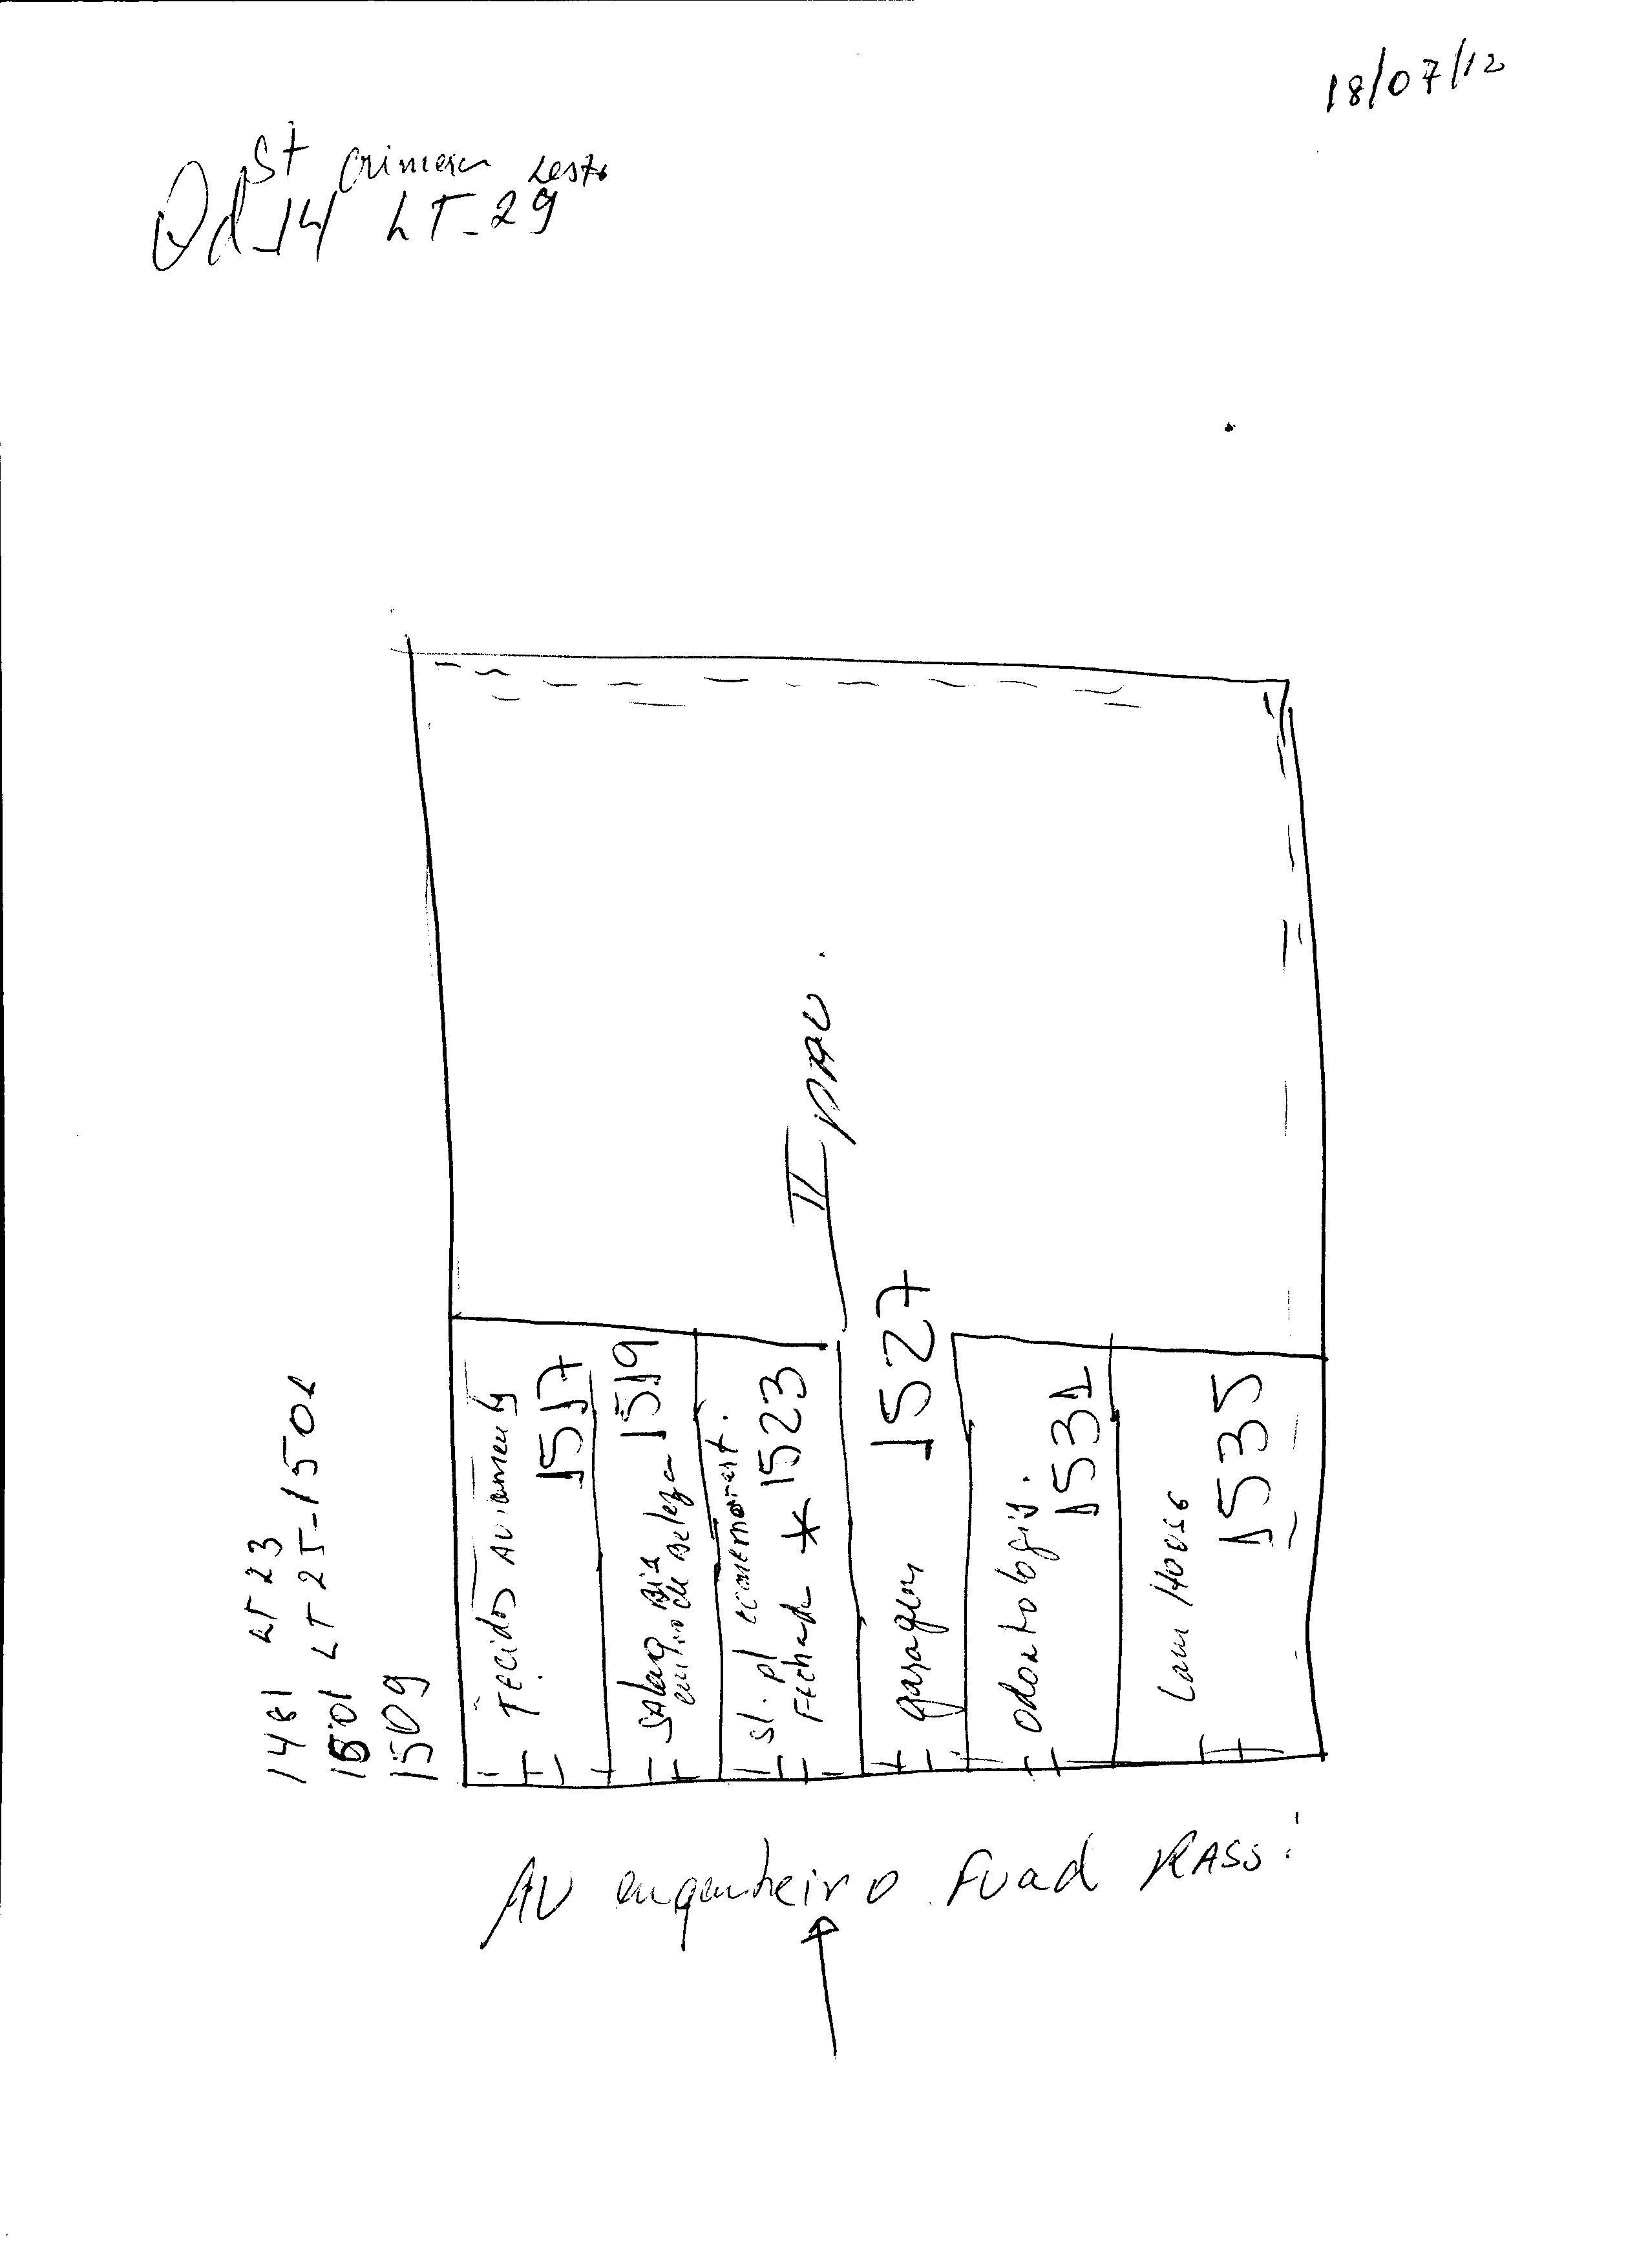 18/07/12
St Crimeia Leste
Qd-14 LT-29
1481 LT 23
1501 LT 25-1501
1509
Tecidos Aviamento
1517
Salão Bia 1519
de Beleza
sl. p/
Fechada * 1523
garagem 1527
odontologis.
1531
Lan House
1535
II PAV.
AV engenheiro Fuad Rassi